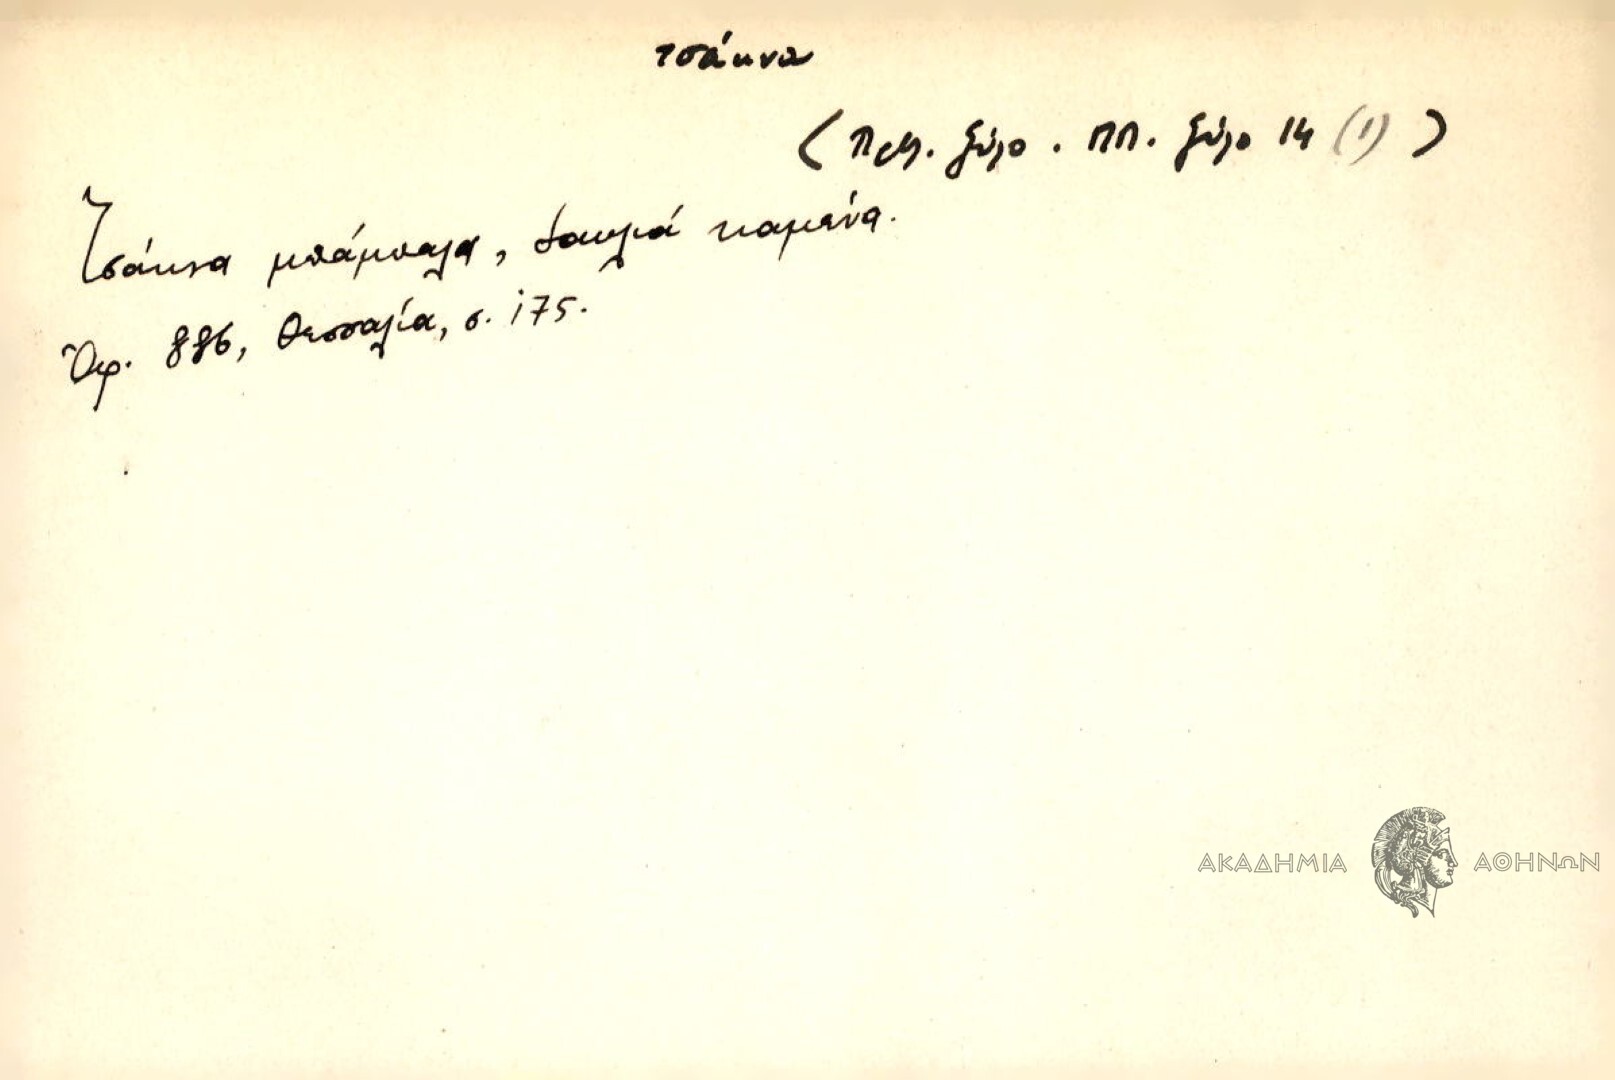 τσάκνα
( Πρβ. ξύλο . ΠΠ. ξύλο 14 (1) )
Τσάκνα μπάμπαλα, δαυλιά καμένα.
Ὑφ. 886, Θεσσαλία, σ. 175.
ΑΚΑΔΗΜΙΑ ΑΘΗΝΩΝ